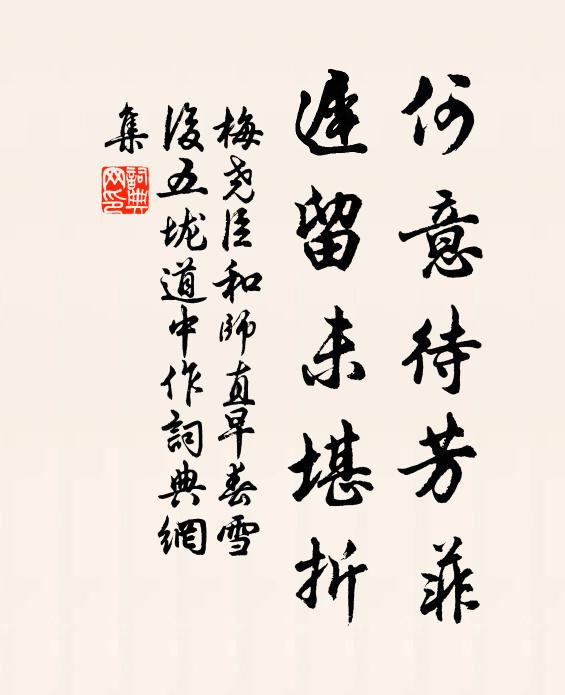 何意待芳菲
遲留未堪折
梅堯臣和師直早春雪
後五垅道中作詞典網
集
詞典
网印